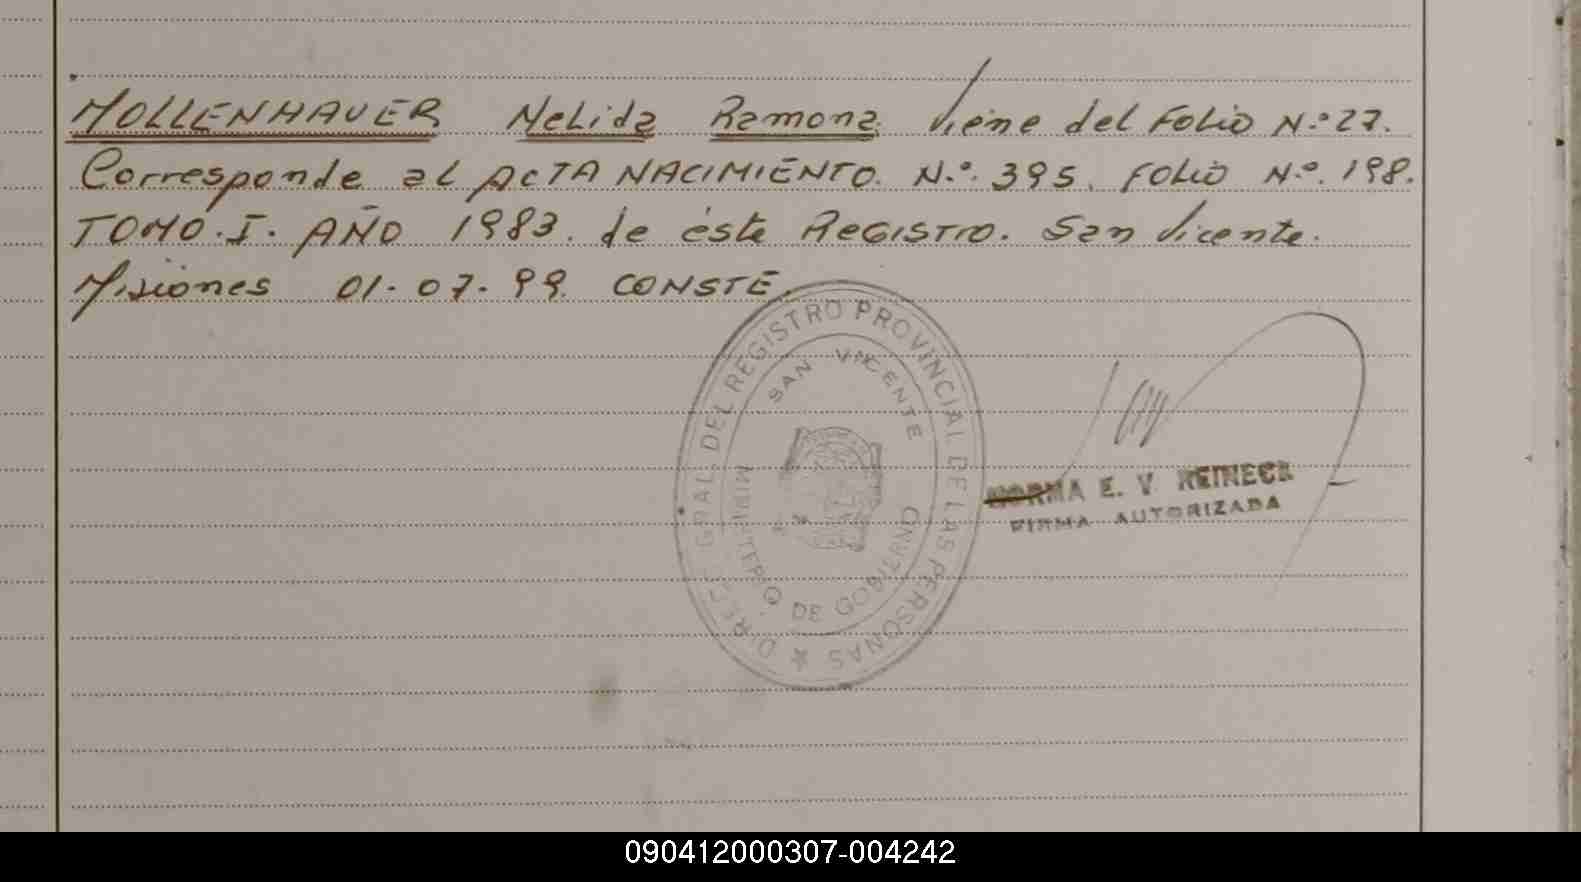 MOLLENHAUER Nelida Ramona Viene del Folio N.º 27.
Corresponde al ACTA NACIMIENTO. N.º. 395. Folio N.º. 198.
TOMO. I. AÑO 1983. de éste REGISTRO. San Vicente.
Misiones 01-07-99. CONSTE.
DIREC. GRAL. DEL REGISTRO PROVINCIAL DE LAS PERSONAS ★
SAN VICENTE
MINISTERIO DE GOBIERNO
NORMA E. V. REINECK
FIRMA AUTORIZADA
090412000307-004242